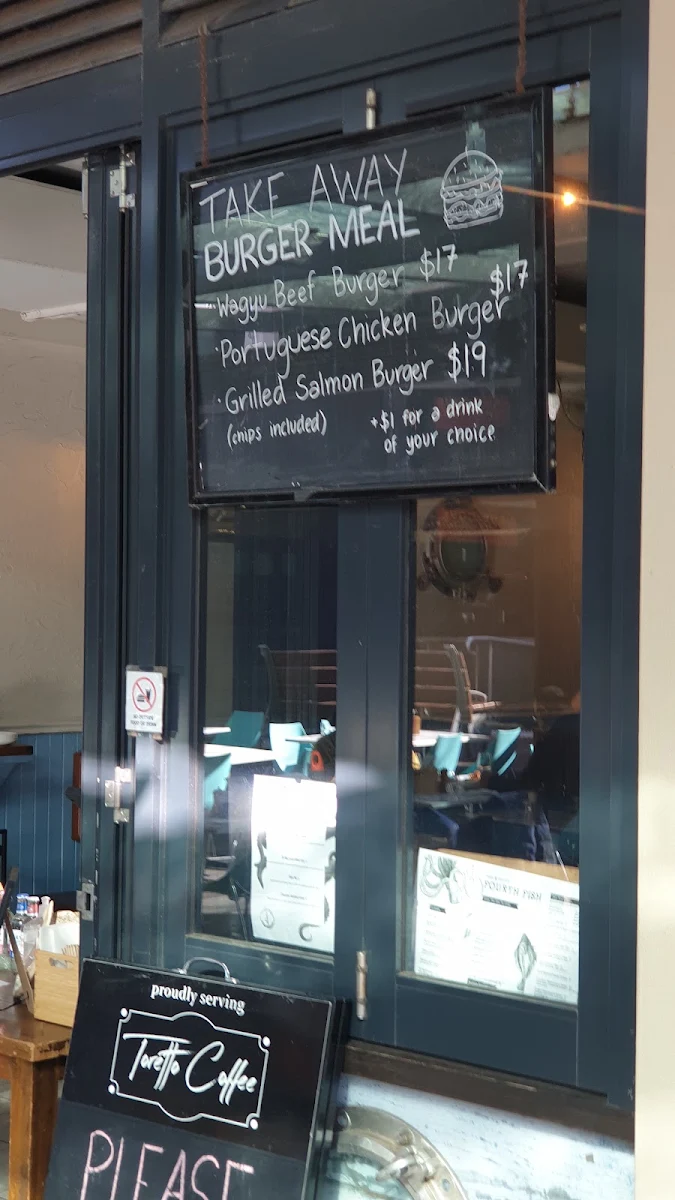 TAKE AWAY
BURGER MEAL
·Wagyu Beef Burger $17
·Portuguese Chicken Burger $17
·Grilled Salmon Burger $19
(chips included)
+$1 for a drink
of your choice
FOURTH FISH
proudly serving
Toretto Coffee
PLEASE